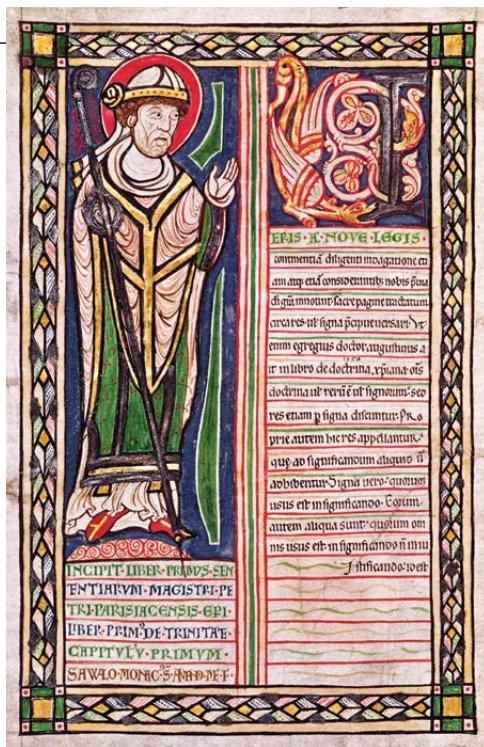 INCIPIT·LIBER·PRIMVS·SEN
ENTIARVM·MAGISTRI·PE
TRI·PARISIACENSIS·EPI·
LIBER·PRIM9·DE·TRINITAE·
CAPITVLV·PRIMVM·
SAWLO·MONAC
VET
ERIS·A·NOVE·LEGIS·
continentiā diligenti indagatione eti
am atq; etiā
sacre pagine tractatum
circa res ul' signa p̄cipue versari. Vt
enim egregius doctor augustinus a
it in libro de doctrina xp̄iana· oīs
doctrina ul' rerū ē ul' signorum· sed
res etiam p signa discuntur. Pro
prie autem hic res appellantur·
que ad significandum aliquid n̄
adhibentur. Signa vero· quorum
usus est in significando· Eorum
autem aliqua sunt· quorum om
nis usus est in significando· n̄ in iu
stificando· idest